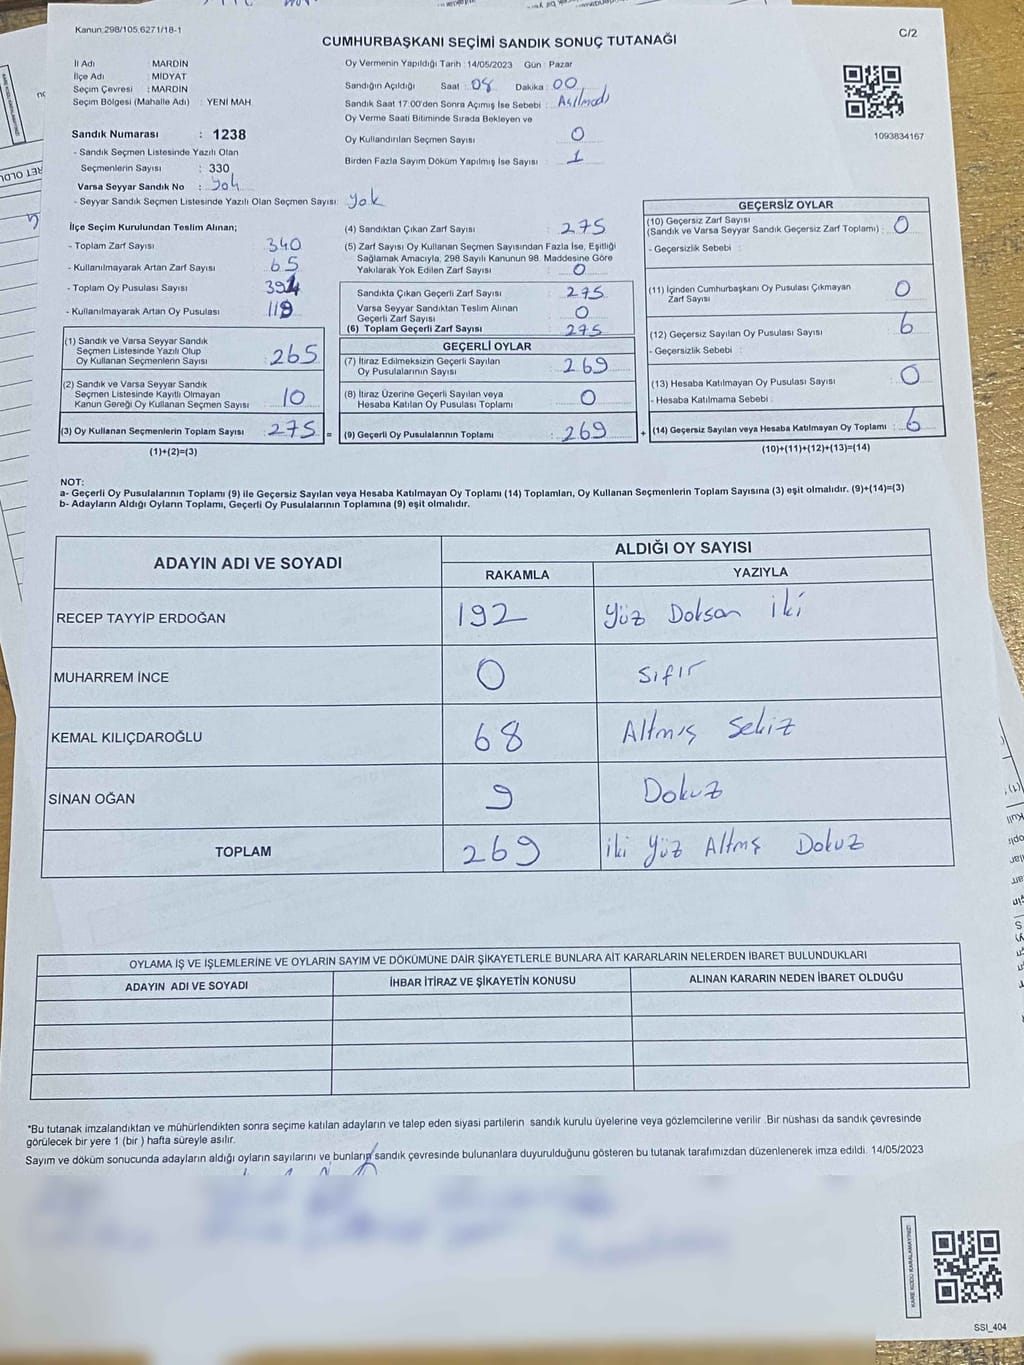 Kanun:298/105,6271/18-1
C/2
CUMHURBAŞKANI SEÇİMİ SANDIK SONUÇ TUTANAĞI
İl Adı : MARDİN
İlçe Adı : MİDYAT
Seçim Çevresi : MARDİN
Seçim Bölgesi (Mahalle Adı) : YENİ MAH.
Sandık Numarası : 1238
- Sandık Seçmen Listesinde Yazılı Olan
Seçmenlerin Sayısı : 330
Varsa Seyyar Sandık No : Yok
- Seyyar Sandık Seçmen Listesinde Yazılı Olan Seçmen Sayısı : Yok
Oy Vermenin Yapıldığı Tarih : 14/05/2023 Gün : Pazar
Sandığın Açıldığı Saat : 08 Dakika : 00
Sandık Saat 17:00'den Sonra Açımış İse Sebebi : Asılmadı
Oy Verme Saati Bitiminde Sırada Bekleyen ve
Oy Kullandırılan Seçmen Sayısı : 0
Birden Fazla Sayım Döküm Yapılmış İse Sayısı : 1
1093834167
İlçe Seçim Kurulundan Teslim Alınan;
- Toplam Zarf Sayısı : 340
- Kullanılmayarak Artan Zarf Sayısı : 65
- Toplam Oy Pusulası Sayısı : 394
- Kullanılmayarak Artan Oy Pusulası : 119
(1) Sandık ve Varsa Seyyar Sandık
Seçmen Listesinde Yazılı Olup
Oy Kullanan Seçmenlerin Sayısı : 265
(2) Sandık ve Varsa Seyyar Sandık
Seçmen Listesinde Kayıtlı Olmayan
Kanun Gereği Oy Kullanan Seçmen Sayısı : 10
(3) Oy Kullanan Seçmenlerin Toplam Sayısı : 275 =
(1)+(2)=(3)
(4) Sandıktan Çıkan Zarf Sayısı : 275
(5) Zarf Sayısı Oy Kullanan Seçmen Sayısından Fazla İse, Eşitliği
Sağlamak Amacıyla, 298 Sayılı Kanunun 98. Maddesine Göre
Yakılarak Yok Edilen Zarf Sayısı : 0
Sandıkta Çıkan Geçerli Zarf Sayısı : 275
Varsa Seyyar Sandıktan Teslim Alınan
Geçerli Zarf Sayısı : 0
(6) Toplam Geçerli Zarf Sayısı : 275
GEÇERLİ OYLAR
(7) İtiraz Edilmeksizin Geçerli Sayılan
Oy Pusulalarının Sayısı : 269
(8) İtiraz Üzerine Geçerli Sayılan veya
Hesaba Katılan Oy Pusulası Toplamı : 0
(9) Geçerli Oy Pusulalarının Toplamı : 269 +
GEÇERSİZ OYLAR
(10) Geçersiz Zarf Sayısı
(Sandık ve Varsa Seyyar Sandık Geçersiz Zarf Toplamı) : 0
- Geçersizlik Sebebi :
(11) İçinden Cumhurbaşkanı Oy Pusulası Çıkmayan
Zarf Sayısı : 0
(12) Geçersiz Sayılan Oy Pusulası Sayısı : 6
- Geçersizlik Sebebi :
(13) Hesaba Katılmayan Oy Pusulası Sayısı : 0
- Hesaba Katılmama Sebebi :
(14) Geçersiz Sayılan veya Hesaba Katılmayan Oy Toplamı : 6
(10)+(11)+(12)+(13)=(14)
NOT:
a- Geçerli Oy Pusulalarının Toplamı (9) ile Geçersiz Sayılan veya Hesaba Katılmayan Oy Toplamı (14) Toplamları, Oy Kullanan Seçmenlerin Toplam Sayısına (3) eşit olmalıdır. (9)+(14)=(3)
b- Adayların Aldığı Oyların Toplamı, Geçerli Oy Pusulalarının Toplamına (9) eşit olmalıdır.
ADAYIN ADI VE SOYADI
ALDIĞI OY SAYISI
RAKAMLA YAZIYLA
RECEP TAYYİP ERDOĞAN 192 Yüz Doksan iki
MUHARREM İNCE 0 Sıfır
KEMAL KILIÇDAROĞLU 68 Altmış Sekiz
SİNAN OĞAN 9 Dokuz
TOPLAM 269 iki Yüz Altmş Dokuz
OYLAMA İŞ VE İŞLEMLERİNE VE OYLARIN SAYIM VE DÖKÜMÜNE DAİR ŞİKAYETLERLE BUNLARA AİT KARARLARIN NELERDEN İBARET BULUNDUKLARI
ADAYIN ADI VE SOYADI İHBAR İTİRAZ VE ŞİKAYETİN KONUSU ALINAN KARARIN NEDEN İBARET OLDUĞU
*Bu tutanak imzalandıktan ve mühürlendikten sonra seçime katılan adayların ve talep eden siyasi partilerin sandık kurulu üyelerine veya gözlemcilerine verilir .Bir nüshası da sandık çevresinde
görülecek bir yere 1 (bir ) hafta süreyle asılır.
Sayım ve döküm sonucunda adayların aldığı oyların sayılarını ve bunların sandık çevresinde bulunanlara duyurulduğunu gösteren bu tutanak tarafımızdan düzenlenerek imza edildi. 14/05/2023
KARE KODU KARALAMAYINIZ!
SSI_404